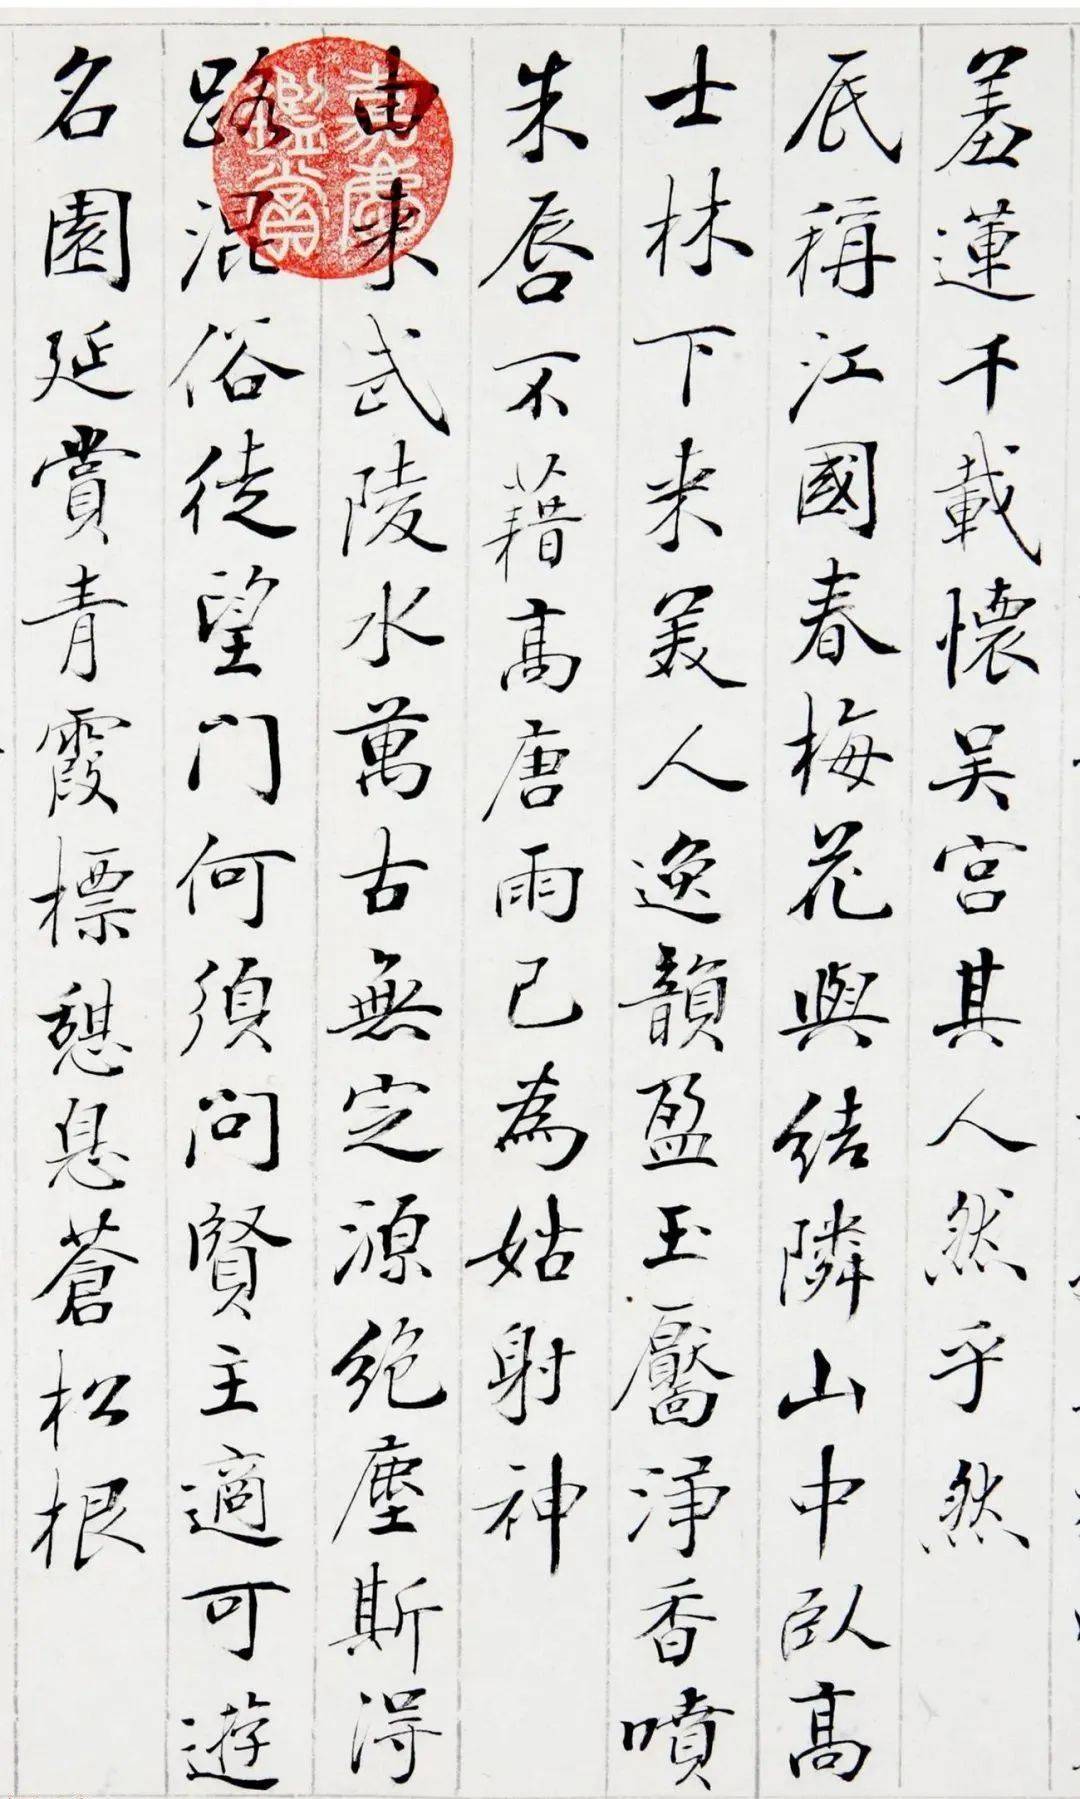 羞蓮千載懷吴宫其人然乎然
辰稱江國春梅花與結隣山中臥高
士林下来美人逸韻盈玉靨淨香噴
朱唇不藉高唐雨已為姑射神
由來武陵水萬古無定源絶塵斯得
路混俗徒望門何須問賢主適可遊
名園延賞青霞標憩息蒼松根